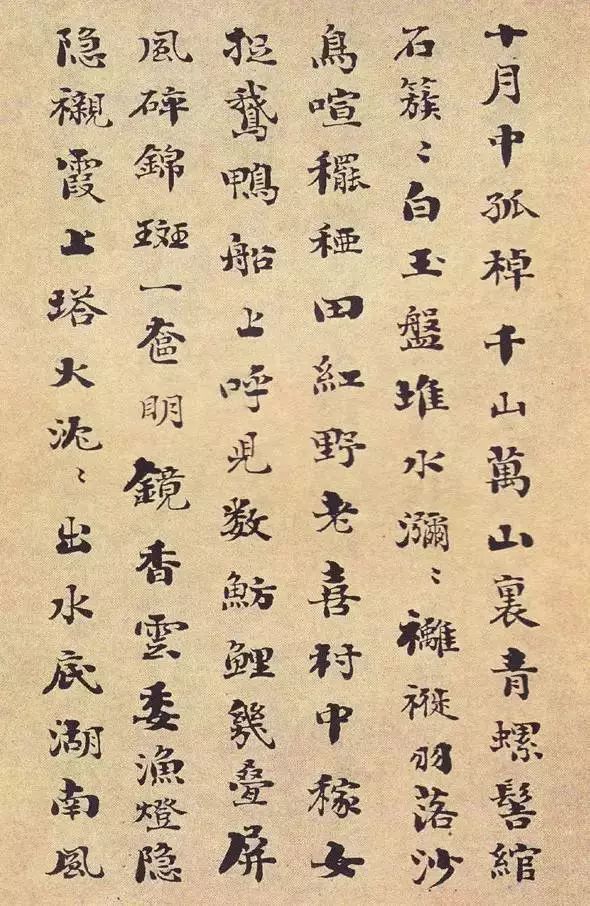 十月中孤棹千山萬山裏青螺髻綰
石簇〻白玉盤堆水瀰〻褵褷羽落沙
鳥喧穲稏田紅野老喜村中稼女
捉鵞鴨船上呼児数魴鯉幾疊屏
風碎錦斑一奩明鏡香雲委漁燈隐
隐襯霞上塔火泥〻出水底湖南風